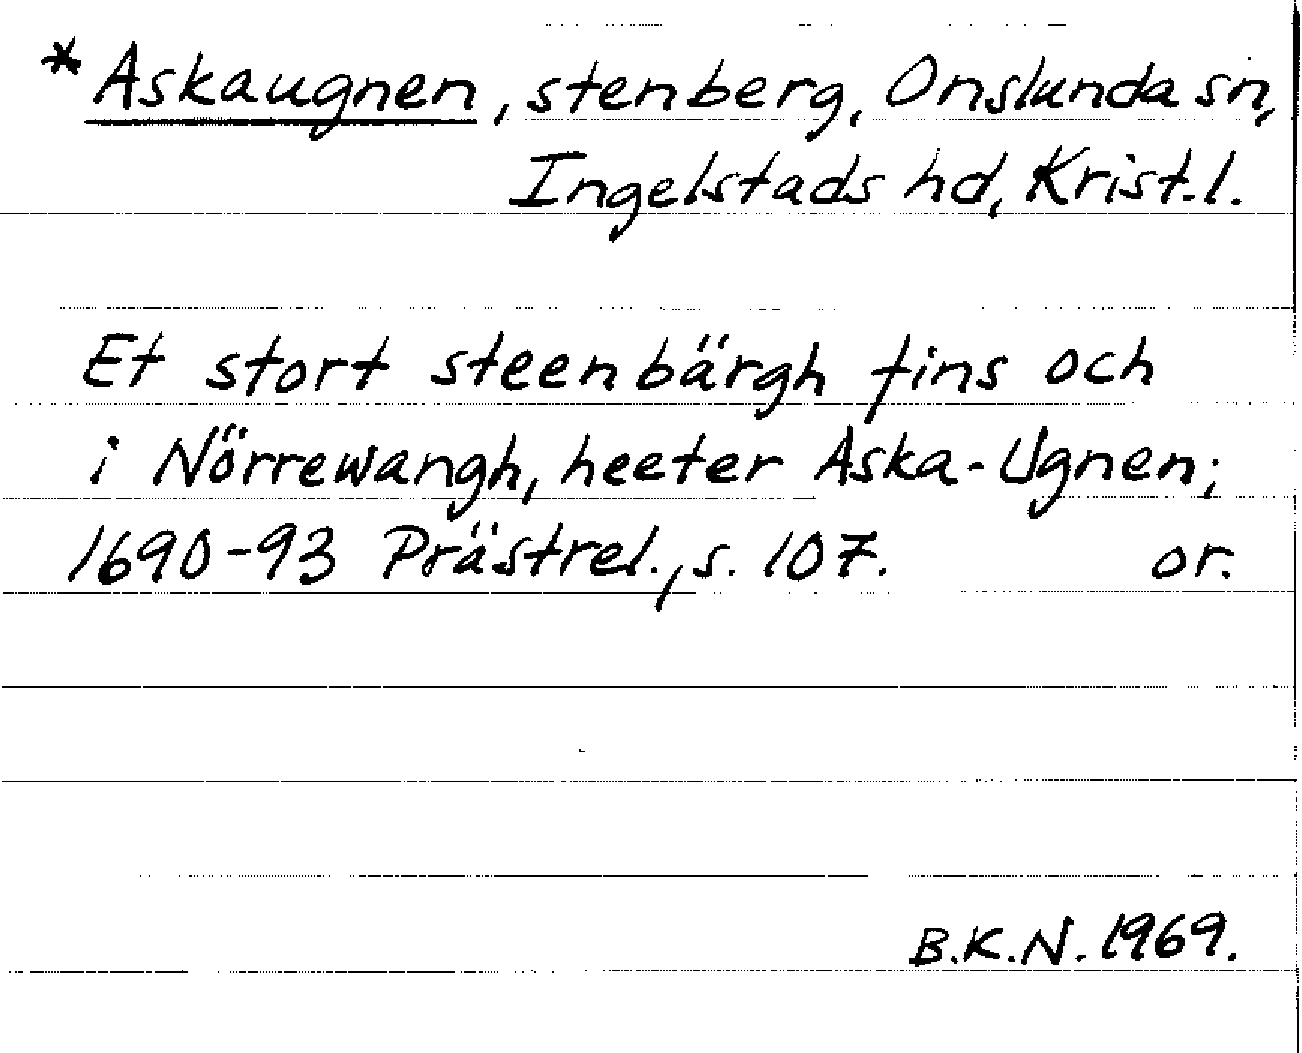 * Askaugnen, stenberg, Onslunda sn,
Ingelstads hd, Krist.l.
Et stort steenbärgh fins och
i Nörrewangh, heeter Aska-Ugnen;
1690-93 Prästrel., s. 107. or.
B.K.N. 1969.